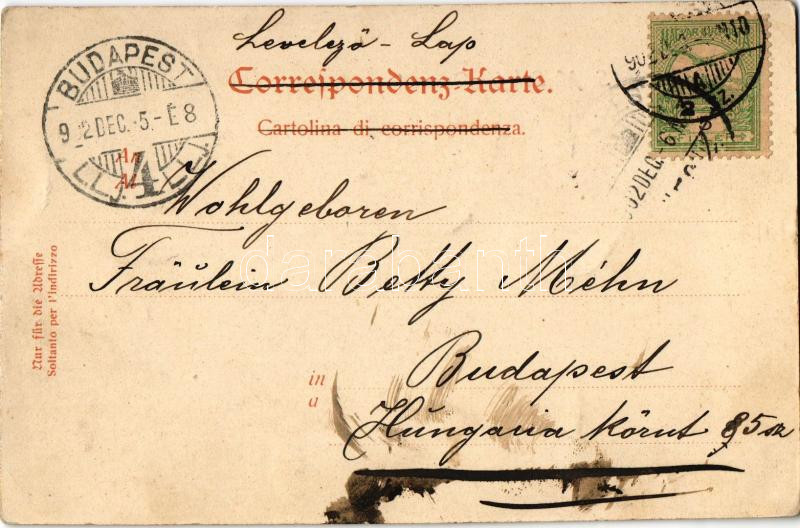 Levelező - Lap
Correspondenz-Karte.
Cartolina di corrispondenza.
BUDAPEST
9_2 DEC. -5.- É8
4
MAGYAR KIR
An
Al
Wohlgeboren
Fräulein Betty Méhn
darabanth
in Budapest
a
Hungaria körut 85 sz
Nur für die Adresse
Soltanto per l'indirizzo
902 DEC. -6